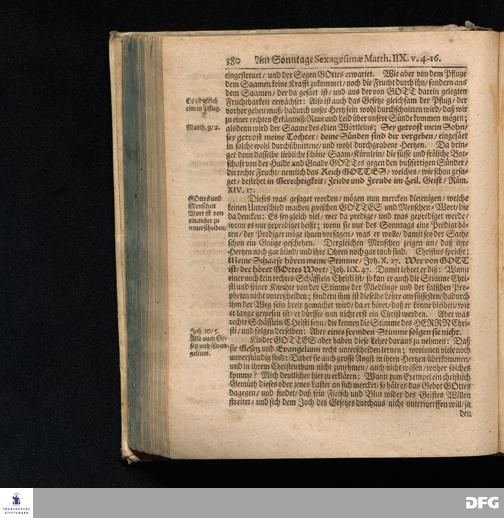 380 Am Sonntage Sexagesimæ Matth. IIX. v. 4-16.
eingestreuet / und der Segen GOttes erwartet. Wie aber von dem Pfluge
dem Saamen keine Krafft zukommet / noch die Frucht durch ihn / sondern aus
dem Saamen / der da gesäet ist / und aus der von GOTT darein gelegten
Fruchtbarkeit erwächset: Also ist auch das Gesetze gleichsam der Pflug / der
vorher gehen muß / dadurch unser Hertz fein wohl durchschnitten wird / daß wir
zu einer rechten Erkäntniß / Reue und Leid über unsere Sünde kommen mögen;
alsdenn wird der Saame des edlen Wörtleins: Sey getrost mein Sohn /
sey getrost meine Tochter / deine Sünden sind dir vergeben / eingesäet
in solche wohl durchschnittene / und wohl durchgrabene Hertzen. Da brin-
get denn dasselbe liebliche schöne Saam-Körnlein / die süsse und fröliche Bot-
schafft von der Hulde und Gnade GOttes gegen den bußfertigen Sünder /
die rechte Frucht / nemlich das Reich GOTTES / welches / wie schon gesa-
get / bestehet in Gerechtigkeit / Friede und Freude im Heil. Geist / Röm.
XIV. 17.
Dieses was gesaget worden / mögen nun mercken diejenigen / welche
keinen Unterscheid machen zwischen GOTTES und Menschen / Wort / die
da dencken: Es sey gleich viel / wer da predige / und was geprediget werde /
wenn es nur geprediget heißt; wenn sie nur des Sonntags eine Predigt hö-
ren / der Prediger möge ihnen vorsagen / was er wolle / damit sey der Sache
schon ein Gnüge geschehen. Dergleichen Menschen zeigen an / daß ihre
Hertzen noch gar blind / und ihre Ohren noch gar taub sind. Christus spricht:
Meine Schaafe hören meine Stimme / Joh. X. 27. Wer von GOTT
ist / der höret GOttes Wort / Joh. IIX. 47. Damit lehret er diß: Wann
einer noch kein rechtes Schäfflein Christi ist / so kan er auch die Stimme Chri-
sti und seiner Knechte von der Stimme der Miedlinge und der falschen Pro-
pheten nicht unterscheiden; sondern ihm ist dieselbe Lehre am süssesten / dadurch
ihm der Weg fein breit gemachet wird / da er höret / daß er könne bleiben / wie
er lange gewesen ist / er dürffte nun nicht erst ein Christ werden. Aber was
rechte Schäfflein Christi seyn / die kennen die Stimme des HERRN Chri-
sti / und folgen derselben: Aber eines fremden Stimme folgen sie nicht.
Kinder GOTTES aber haben diese Lehre daraus zu nehmen: Daß
sie Gesetz und Evangelium recht unterscheiden lernen; worinnen viele noch
unverständig sind: Daher sie auch grosse Angst in ihren Hertzen überkommen /
und in ihrem Christenthum nicht zunehmen / auch nicht wissen / woher solches
komme? Mich deutlicher hier zu erklären: Wann zum Exempel ein christlich
Gemüth dieses oder jenes Laster an sich mercket / so hält es das Gebot GOttes
dagegen / und findet / daß sein Fleisch und Blut wider des Geistes Willen
streitet / und sich dem Joch des Gesetzes durchaus nicht unterwerffen will / ja
den
einem Pflug.
Matth. 9 / 2.
GOttes und
Menschen
Wort ist von
einander zu
unterscheiden /
Joh. 10 / 5.
Also auch Ge-
setz und Evan-
gelium.
FRANCKESCHE
STIFTUNGEN
DFG